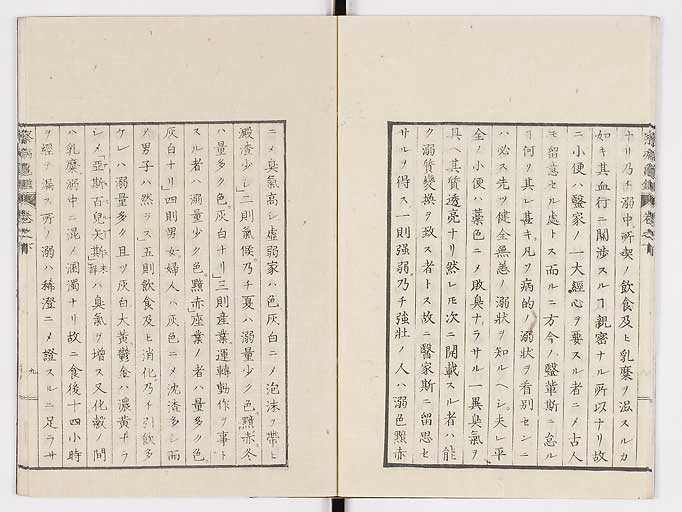 ナリ乃チ溺中所喫ノ飲食及ヒ乳糜ヲ滋スルカ
如キ其血行ニ関渉スルヿ親密ナル所以ナリ故
ニ小便ハ毉家ノ一大經心ヲ要スル者ニメ古人
モ留意セル處トス而ルニ方今ノ毉輩斯ニ怠ル
ヿ何ヲ其レ甚キ凡ソ病的ノ溺状ヲ看別センニ
ハ必ス先ツ健全無恙ノ溺状ヲ知ルヘシ夫レ平
全ノ小便ハ藁色ニメ敗臭ナラサル一異臭氣ヲ
具ヘ其質透亮ナリ然レ𪜈次ニ開載スル者ハ能
ク溺質變換ヲ致ス者トス故ニ毉家斯ニ留思セ
サルヲ得ス一則強弱乃チ強壮ノ人ハ溺色黯赤
ニメ臭氣高シ虚弱家ハ色灰白ニメ泡沫ヲ帶ヒ
澱渣少シ」二則氣候乃チ夏ハ溺量少ク色黯赤冬
ハ量多ク色灰白ナリ」三則産業運轉動作ヲ事ト
スル者ハ溺量少ク色黯赤」座業ノ者ハ量多ク色
灰白ナリ」四則男女婦人ハ灰色ニメ沈渣多シ而
メ男子ハ然ラス」五則飲食及ヒ消化乃チ引飲多
ケレハ溺量多ク且ツ灰白大黄欝金ハ濃黄ナラ
シメ「亞斯百兒矢斯」ハ臭氣ヲ増ス又化穀ノ間
ハ乳糜溺中ニ混メ溷濁ナリ故ニ食後十四小時
ヲ經テ漏ス所ノ溺ハ稀澄ニメ證スルニ足ラサ
卷之下
九